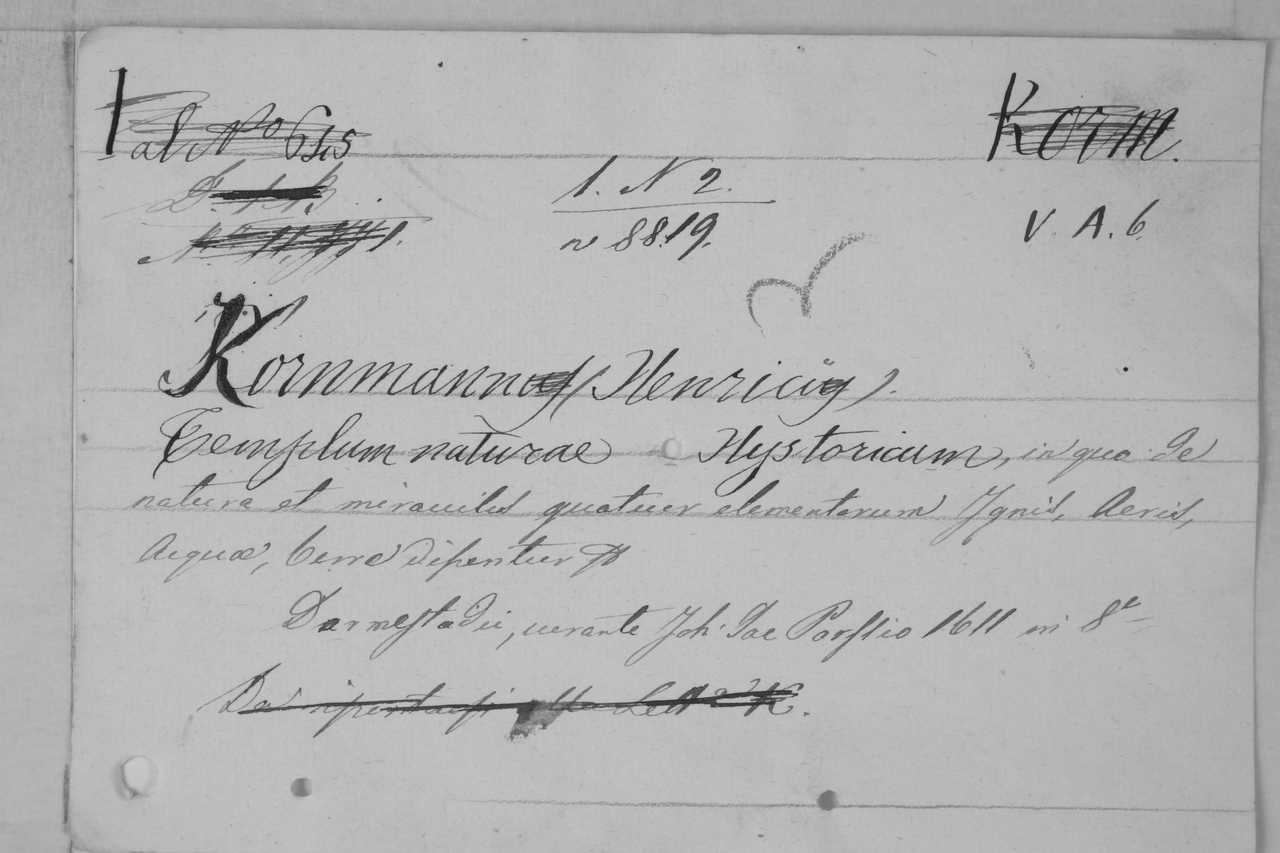 al No 615
Korm.
1. N 2.
n 8819.
V. A. 6
Kornmann (Henrici).
Templum naturae Hystoricum, in quo de
natura et miraculis quatuor elementorum Ignis, Aeris,
Acquæ, Terre
Darmestadii, curante Joh. Jac Porssio 1611 in 8º